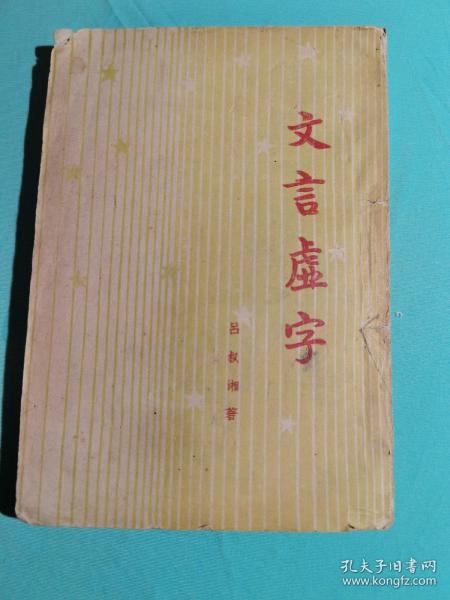 文言虛字
呂叔湘著
孔夫子旧书网
www.kongfz.com